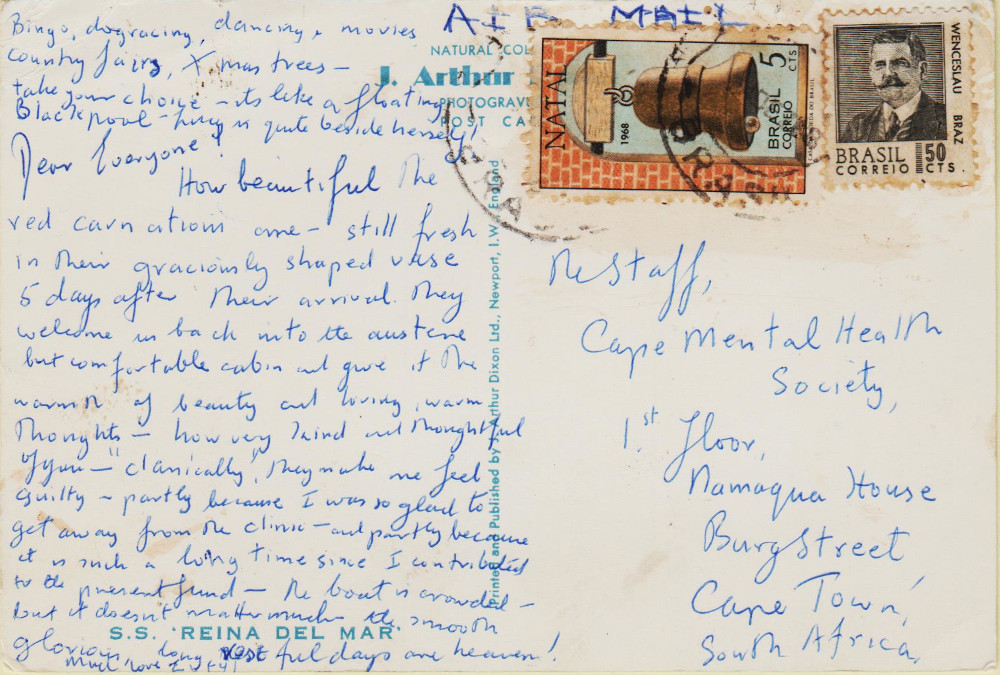 AIR MAIL
Bingo, dogracing, dancing, movies
country fairs, Xmas trees –
take your choice – its like a floating
Blackpool – is quite beside herself!
Dear Everyone!
How beautiful the
red carnations are – still fresh
in their graciously shaped vase
5 days after their arrival. They
welcome us back into the austere
but comfortable cabin and give it the
warmth of beauty and loving, warm
thoughts – how very kind and thoughtful
of you – "clinically", they make me feel
guilty – partly because I was so glad to
get away from the clinic – and partly because
it is such a long time since I contributed
to the present fund – The boat is crowded –
but it doesn't matter much – the smooth
glorious, long restful days are heaven!
Much love
S.S. 'REINA DEL MAR'
NATURAL COL
J. Arthur
PHOTOGRAVE
POST CA
Printed and Published by J. Arthur Dixon Ltd., Newport, I.W., England
NATAL
1968
5 CTS
BRASIL
CORREIO
WENCESLAU BRAZ
BRASIL 50
CORREIO CTS.
The Staff,
Cape Mental Health
Society,
1st Floor,
Namaqua House
Burg Street,
Cape Town,
South Africa,